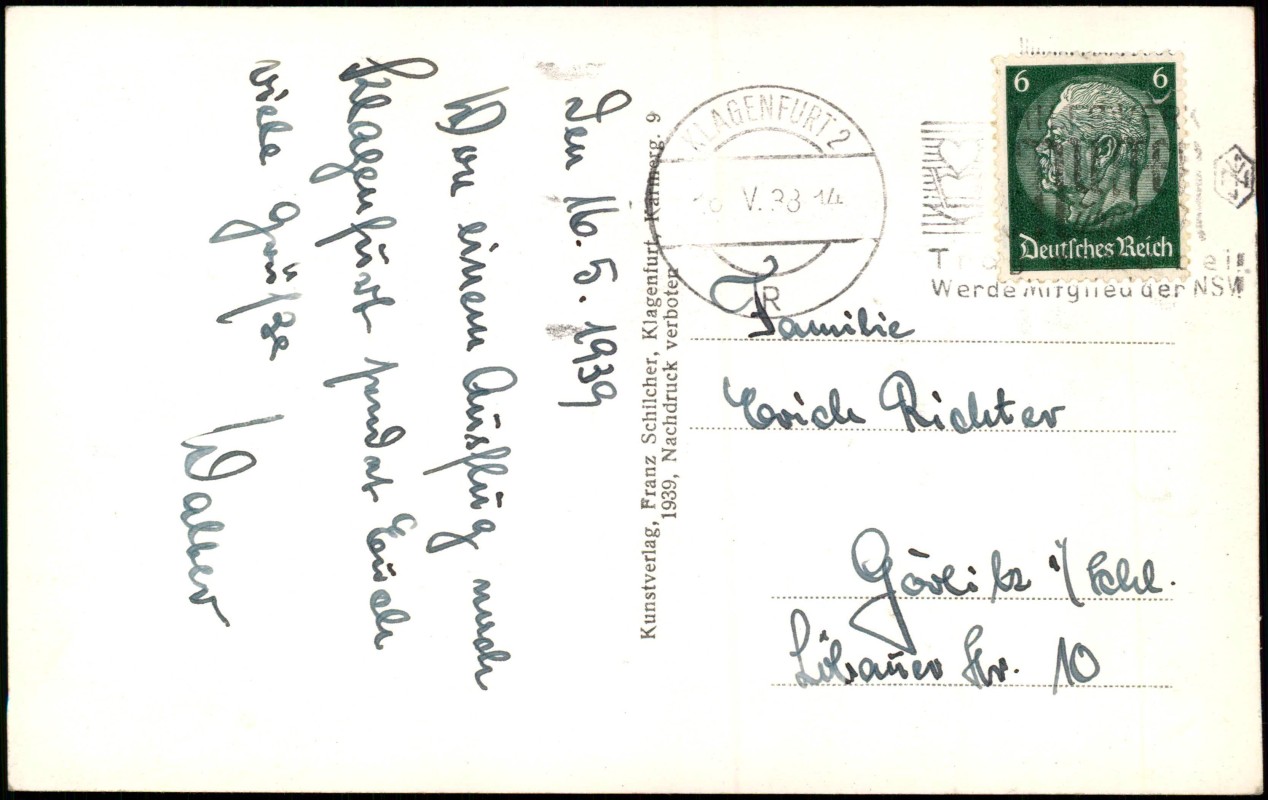 Den 16. 5. 1939
Von einem Ausflug nach
Klagenfurt sendet Euch
viele Grüße
Walter
Kunstverlag, Franz Schilcher, Klagenfurt, Karnerg. 9
1939, Nachdruck verboten
KLAGENFURT 2
16 V. 38 14
R
6 6
Deutsches Reich
Werde Mitglied der NSV
Familie
Erich Richter
Görlitz i/Schl.
Löbauer Str. 10